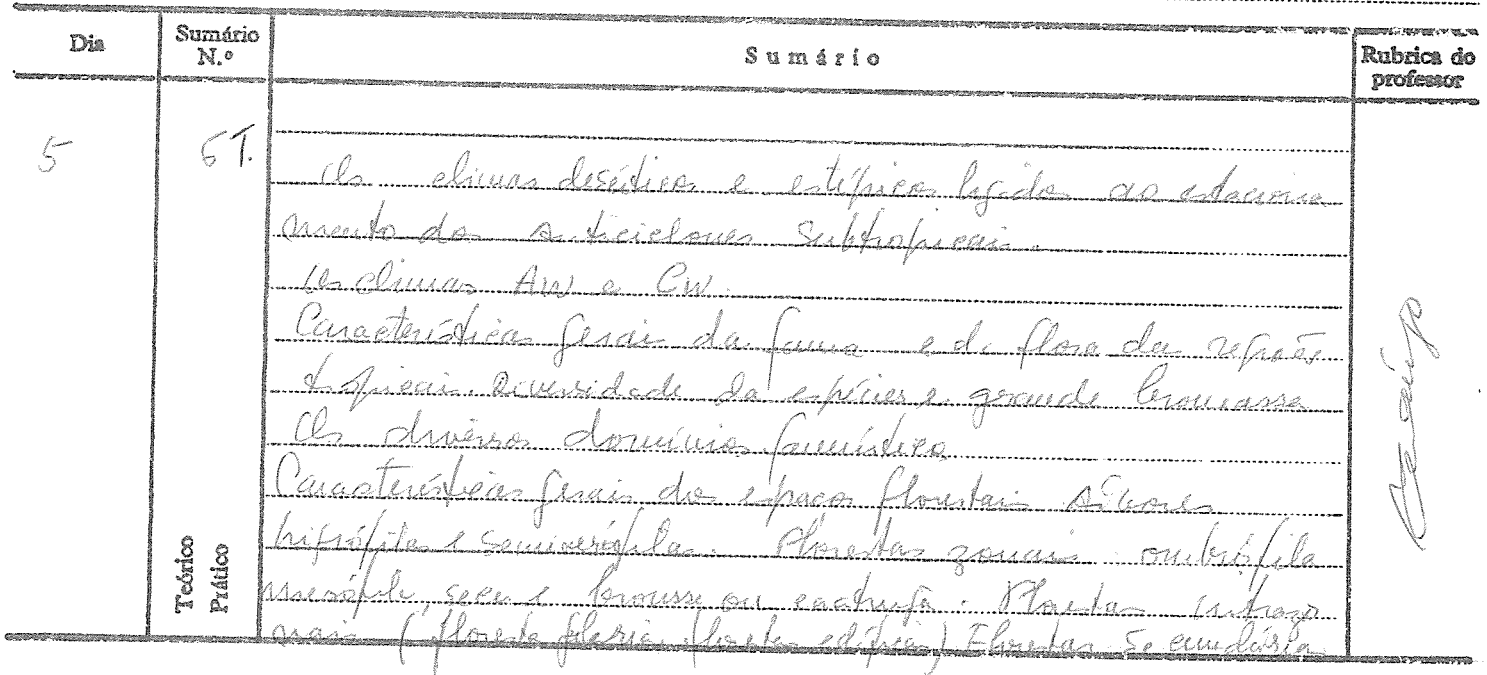 Dia Sumário N.º Sumário Rubrica do professor
5 6T.
Os climas desérticos e estépicos ligados ao estaciona
mento dos anticiclones subtropicais.
Os climas Aw e Cw.
Características gerais da fauna e da flora das regiões
tropicais. Diversidade da espécies e grande biomassa
Os diversos domínios faunísticos
Características gerais dos espaços florestais Árvores
higrófitas e Florestas zonais ombrófila
mesófila, seca e brousse ou Florestas intrazo
nais (floresta floresta edáfica) Florestas secundária
Teórico
Prático